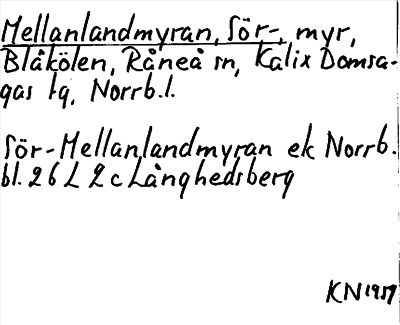 Mellanlandmyran, Sör-, myr,
Blåkölen, Råneå sn, Kalix Domsa-
gas tg, Norrb.l.
Sör-Mellanlandmyran ek Norrb.
bl. 26 L 2 c Långhedsberg
KN 1959